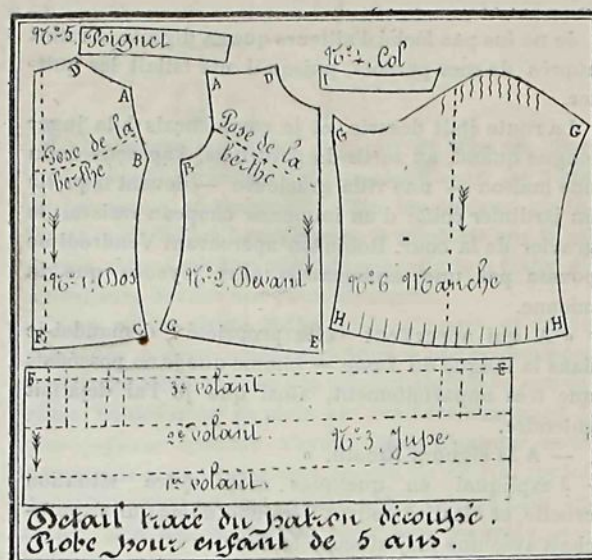 Nº 5. Poignet
Nº 4. Col
I
D
A
B
C
F
Pose de la
berthe
Nº 1. Dos
A
D
B
Pose de la
berthe
Nº 2. Devant
C
E
G
G
Nº 6 Manche
H
H
F
E
3e volant
2e volant
Nº 3 Jupe
1er volant
Détail tracé du patron découpé.
Robe pour enfant de 5 ans.